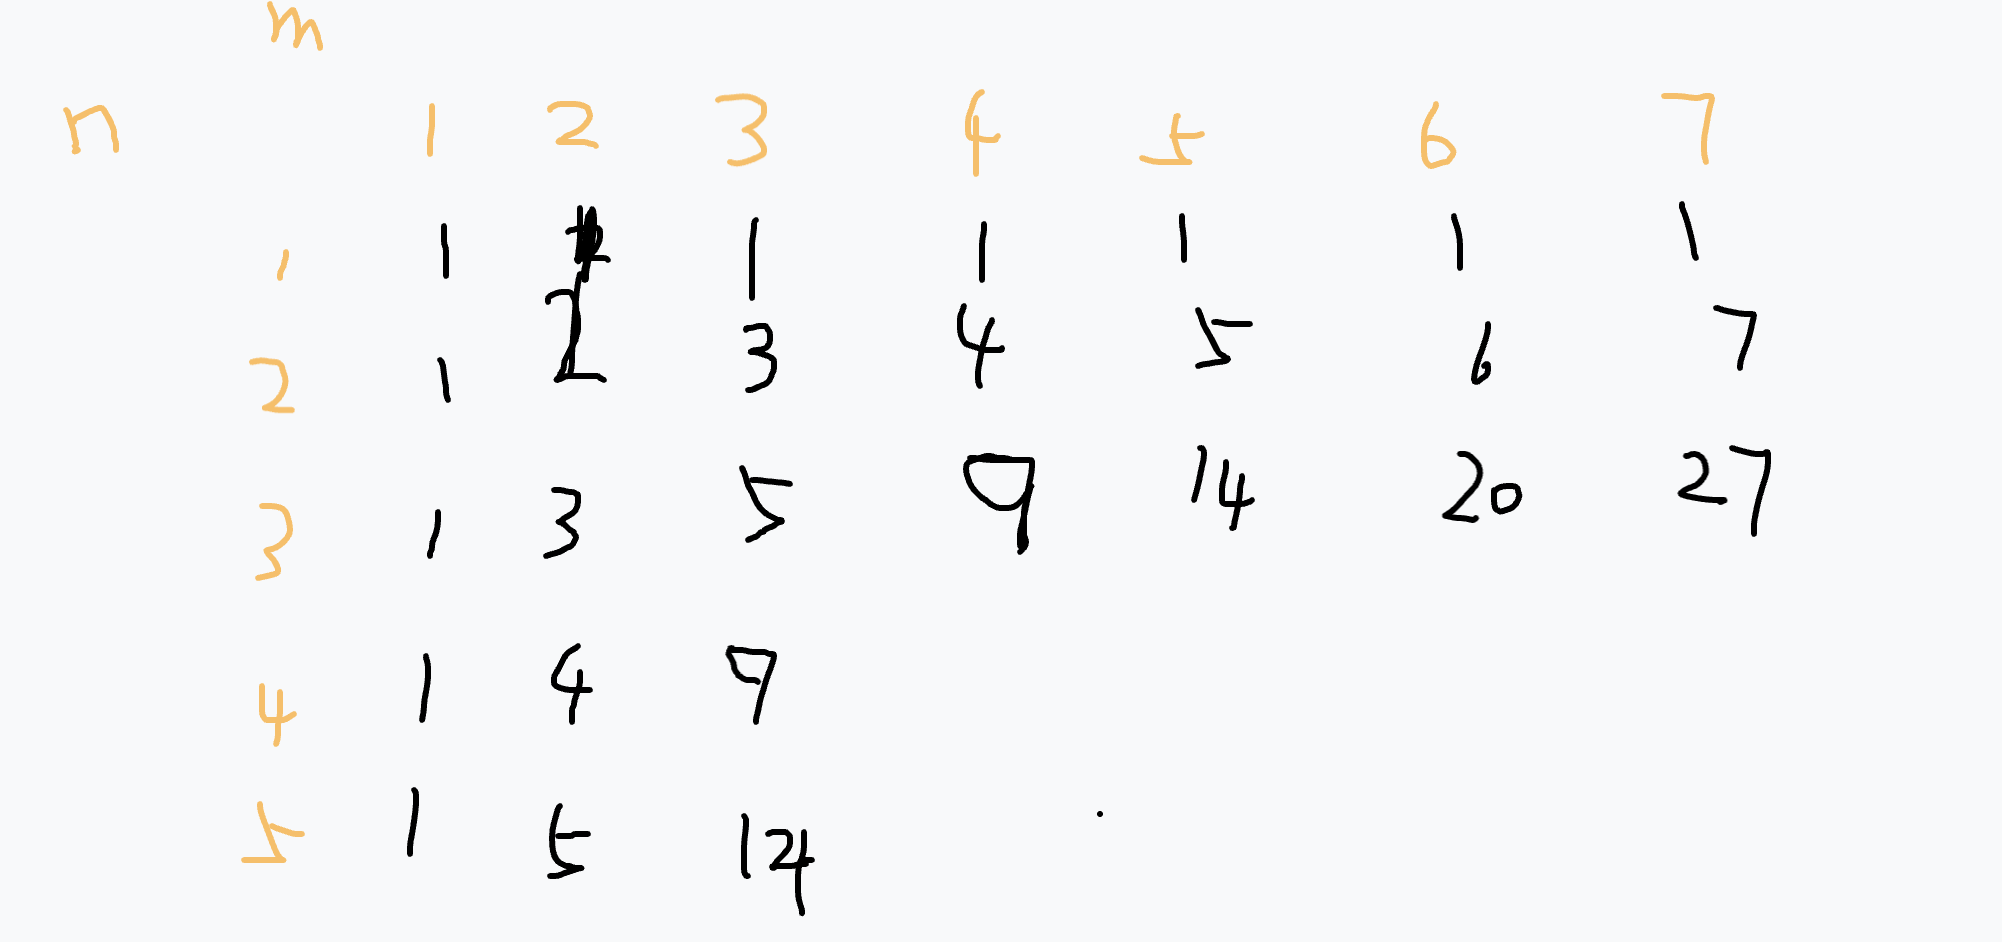 m
n 1 2 3 4 5 6 7
1 1 1 1 1 1 1
2 1 2 3 4 5 6 7
3 1 3 5 9 14 20 27
4 1 4 9
5 1 5 14